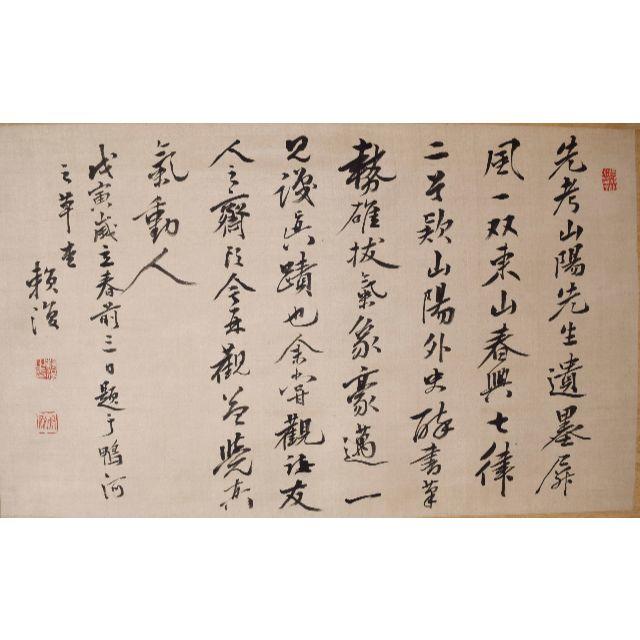 先考山陽先生遺墨屏
風一双東山春興七律
二首款山陽外史醉書筆
勢雄拔氣象豪邁一
見後眞蹟也余嘗觀諸友
人之齋頭今再觀益覺其
氣動人
戊寅歳立春前三日題于鴨河
之草堂
賴復